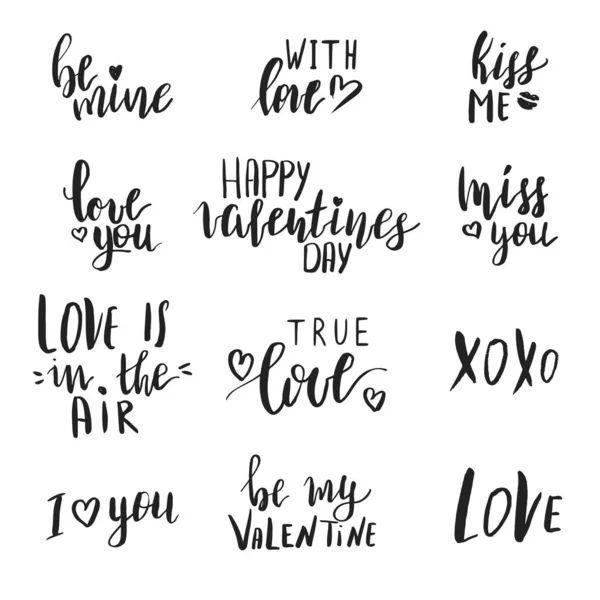 be
mine
WITH
love
kiss
ME
love
you
HAPPY
valentines
DAY
miss
you
LOVE IS
in the
AIR
TRUE
love
XOXO
I you
be my
VALENTINE
LOVE